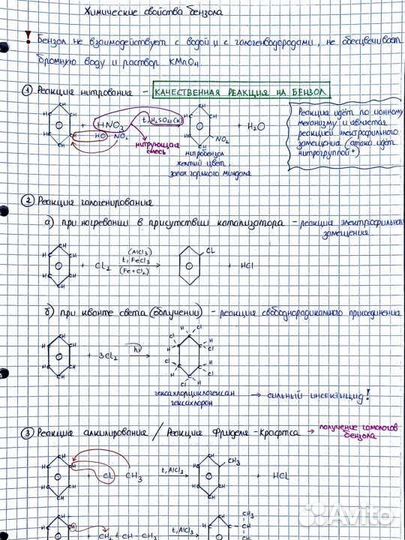 Химические свойства бензола
! Бензол не взаимодействует с водой и с галогеноводородами, не обесцвечивает
бромную воду и раствор KMnO₄.
① Реакция нитрования - КАЧЕСТВЕННАЯ РЕАКЦИЯ НА БЕНЗОЛ
+ HNO₃ t, H₂SO₄(к) NO₂ + H₂O
HO NO₂
нитрующая
смесь
нитробензол
желтый цвет
запах горького миндаля
Реакция идёт по ионному
механизму и является
реакцией электрофильного
замещения (атака идёт
нитрогруппой⁺)
② Реакция галогенирования
а) при нагревании в присутствии катализатора - реакция электрофильного
замещения
+ Cl₂ (AlCl₃) t, FeCl₃ (Fe+Cl₂) CL HCl
б) при кванте света (облучении) - реакция свободнорадикального присоединения
+ 3Cl₂ hν
гексахлорциклогексан → сильный инсектицид!
гексахлоран
③ Реакция алкилирования / Реакция Фриделя-Крафтса → получение гомологов
бензола
+ Cl CH₃ t, AlCl₃ CH₃ + HCl
t, AlCl₃
Avito